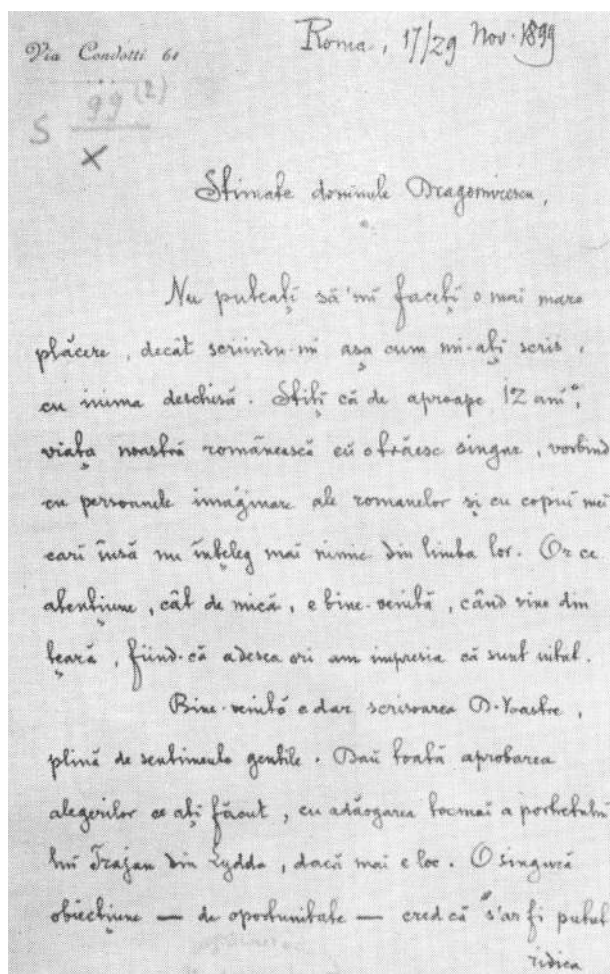 Via Condotti 61
Roma, 17/29 Nov. 1899
S 99 (2)
X
Stimate domnule Dragomirescu,
Nu puteați să'mi faceți o mai mare
plăcere, decât scriindu-mi așa cum mi-ați scris,
cu inima deschisă. Știți că de aproape 12 ani,
viața noastră românească eŭ o trăesc singur, vorbind
cu persoanele imaginare ale romanelor și cu copiii mei
cari însă nu înțeleg mai nimic din limba lor. Or ce
atențiune, cât de mică, e bine-venită, când vine din
țeară, fiind-că adesea ori am impresia că sunt uitat.
Bine-venită e dar scrisoarea D-Voastre,
plină de sentimente gentile. Daŭ toată aprobarea
alegerilor ce ați făcut, cu adăogarea tocmai a portetului
luĭ Trajan din Lydda, dacă mai e loc. O singură
obiecțiune — de oportunitate — cred că s'ar fi putut
ridica